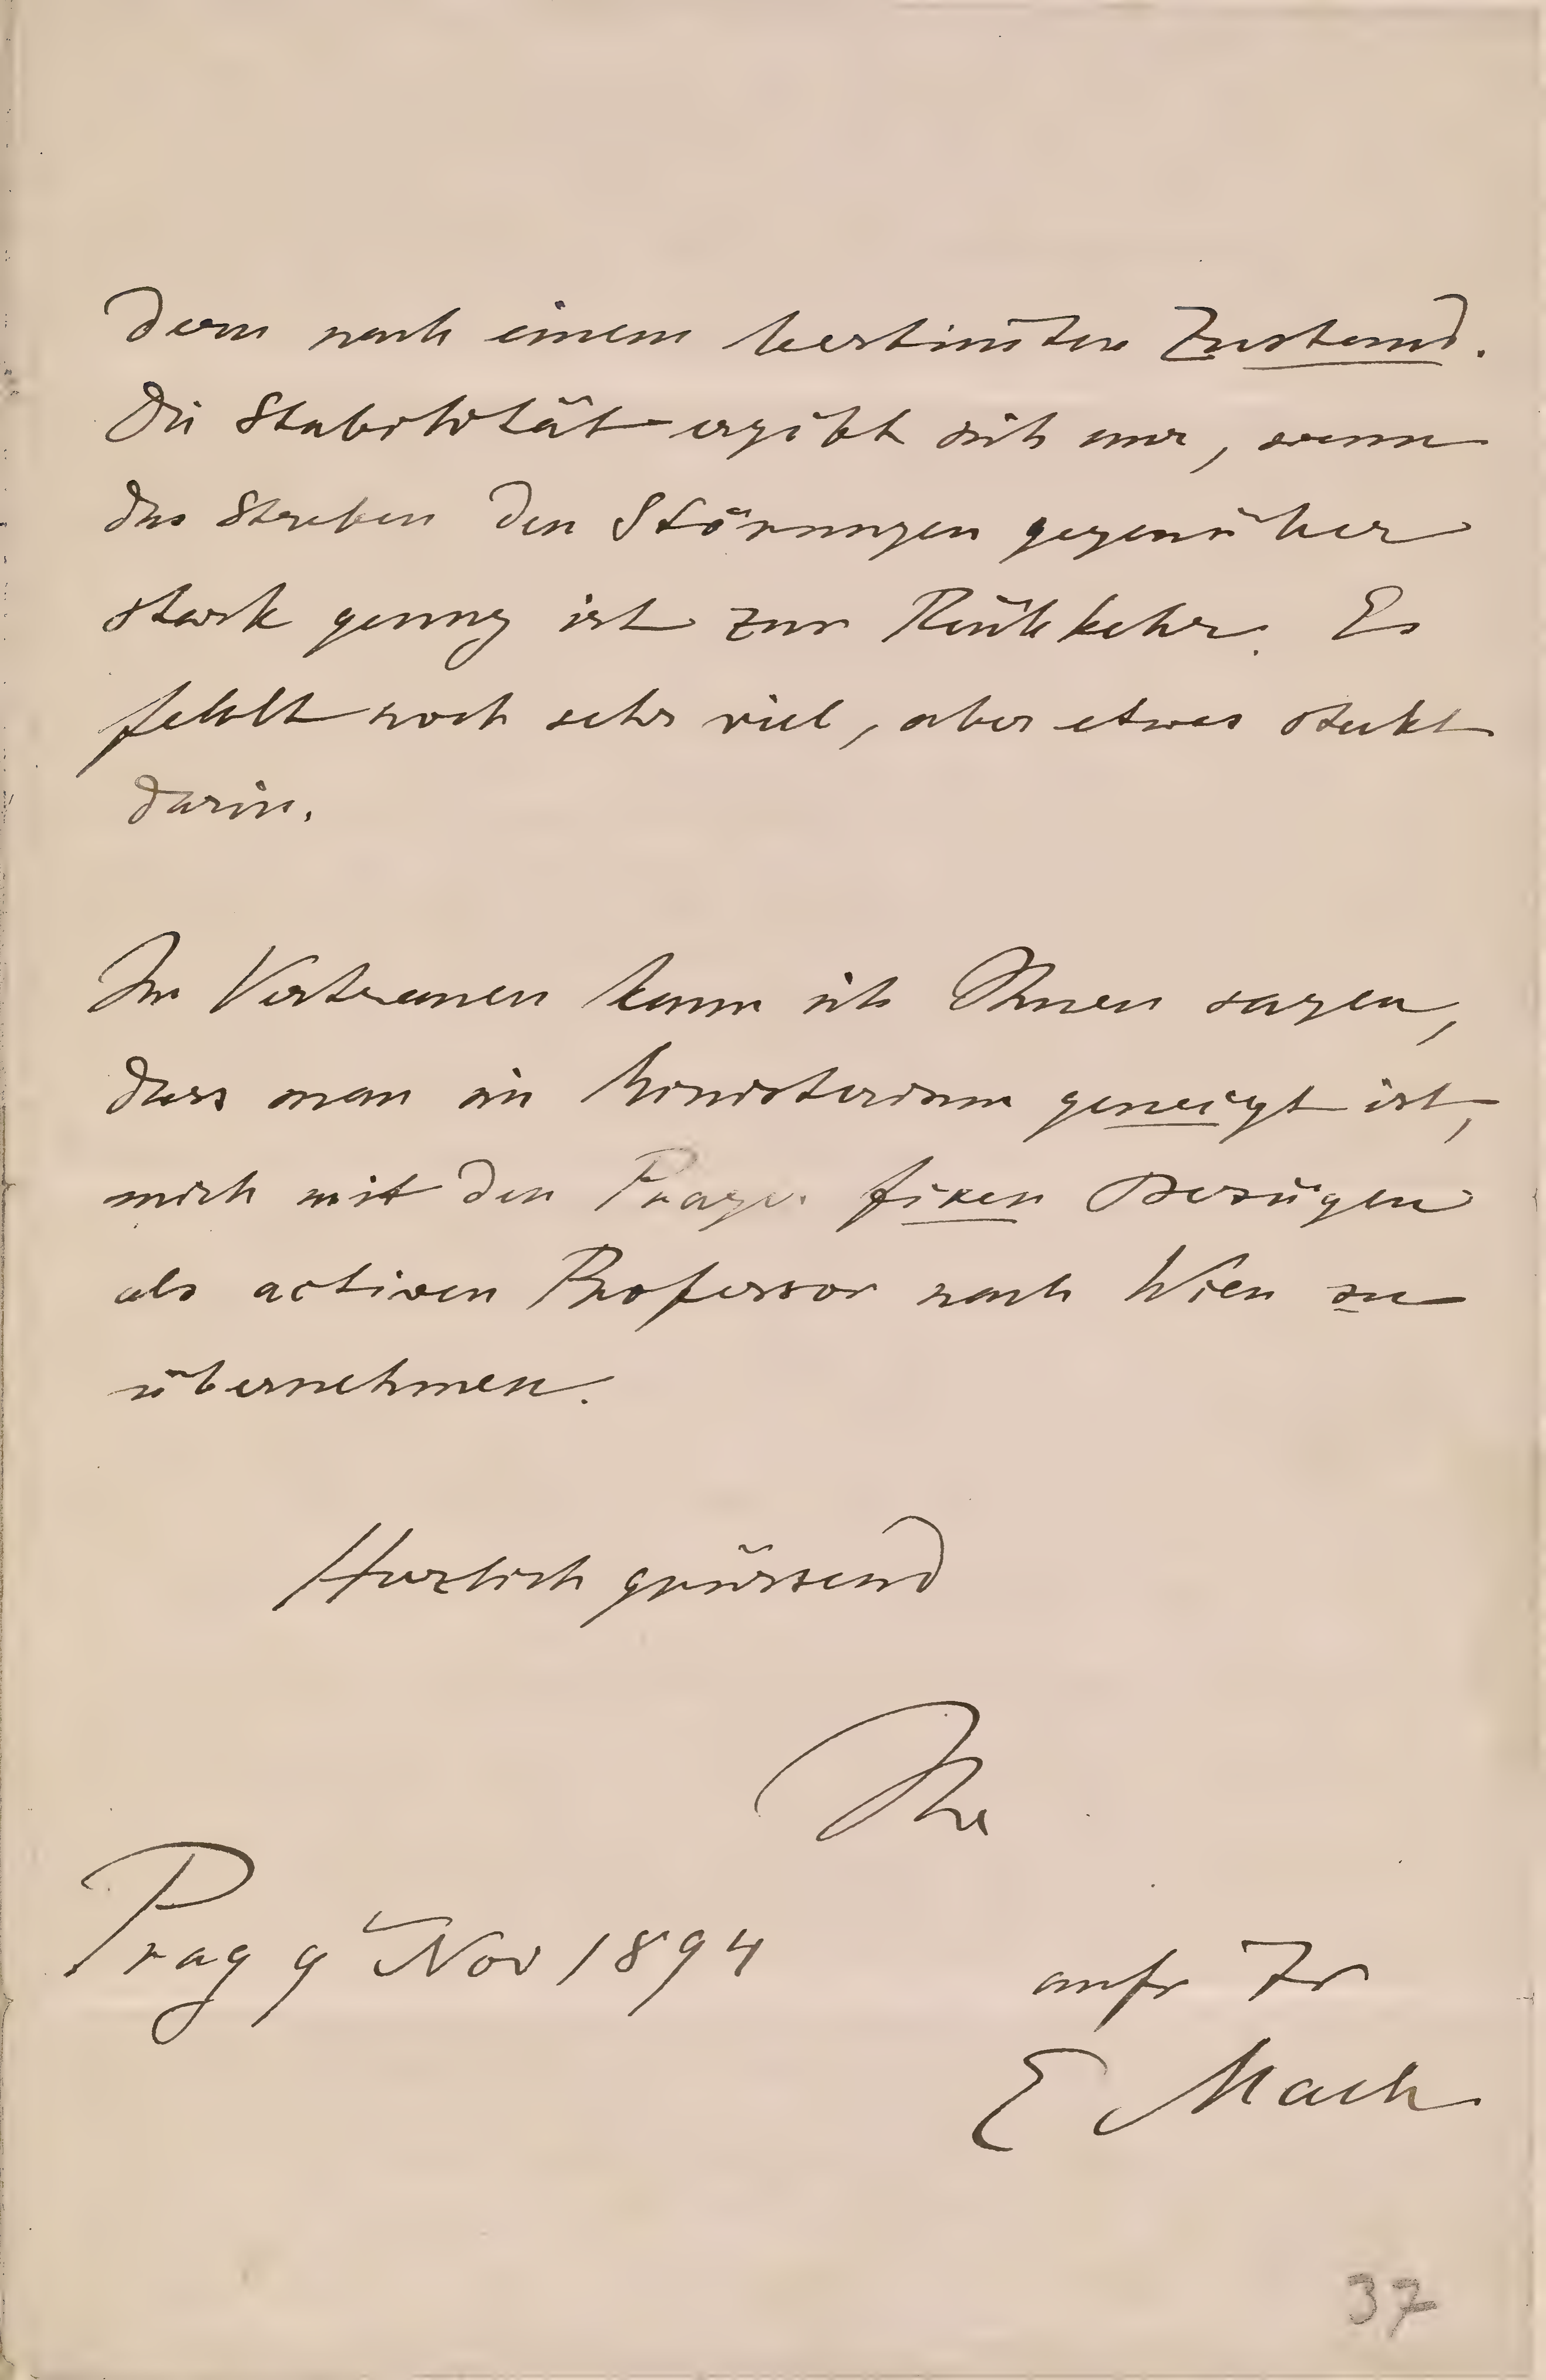 dern nach einem bestim̄ten Zustand.
Die Stabilität ergibt sich nur, wenn
das Streben den Störungen gegenüber
stark genug ist zur Rükkehr. Es
fehlt noch sehr viel, aber etwas stekt
darin.
Im Vertrauen kann ich Ihnen sagen,
dass man im Ministerium geneigt ist,
mich mit den Prager fixen Bezügen
als activen Professor nach Wien zu
übernehmen.
Herzlich grüssend
Ihr
Prag 9 Nov 1894
aufr Fr
E Mach
37